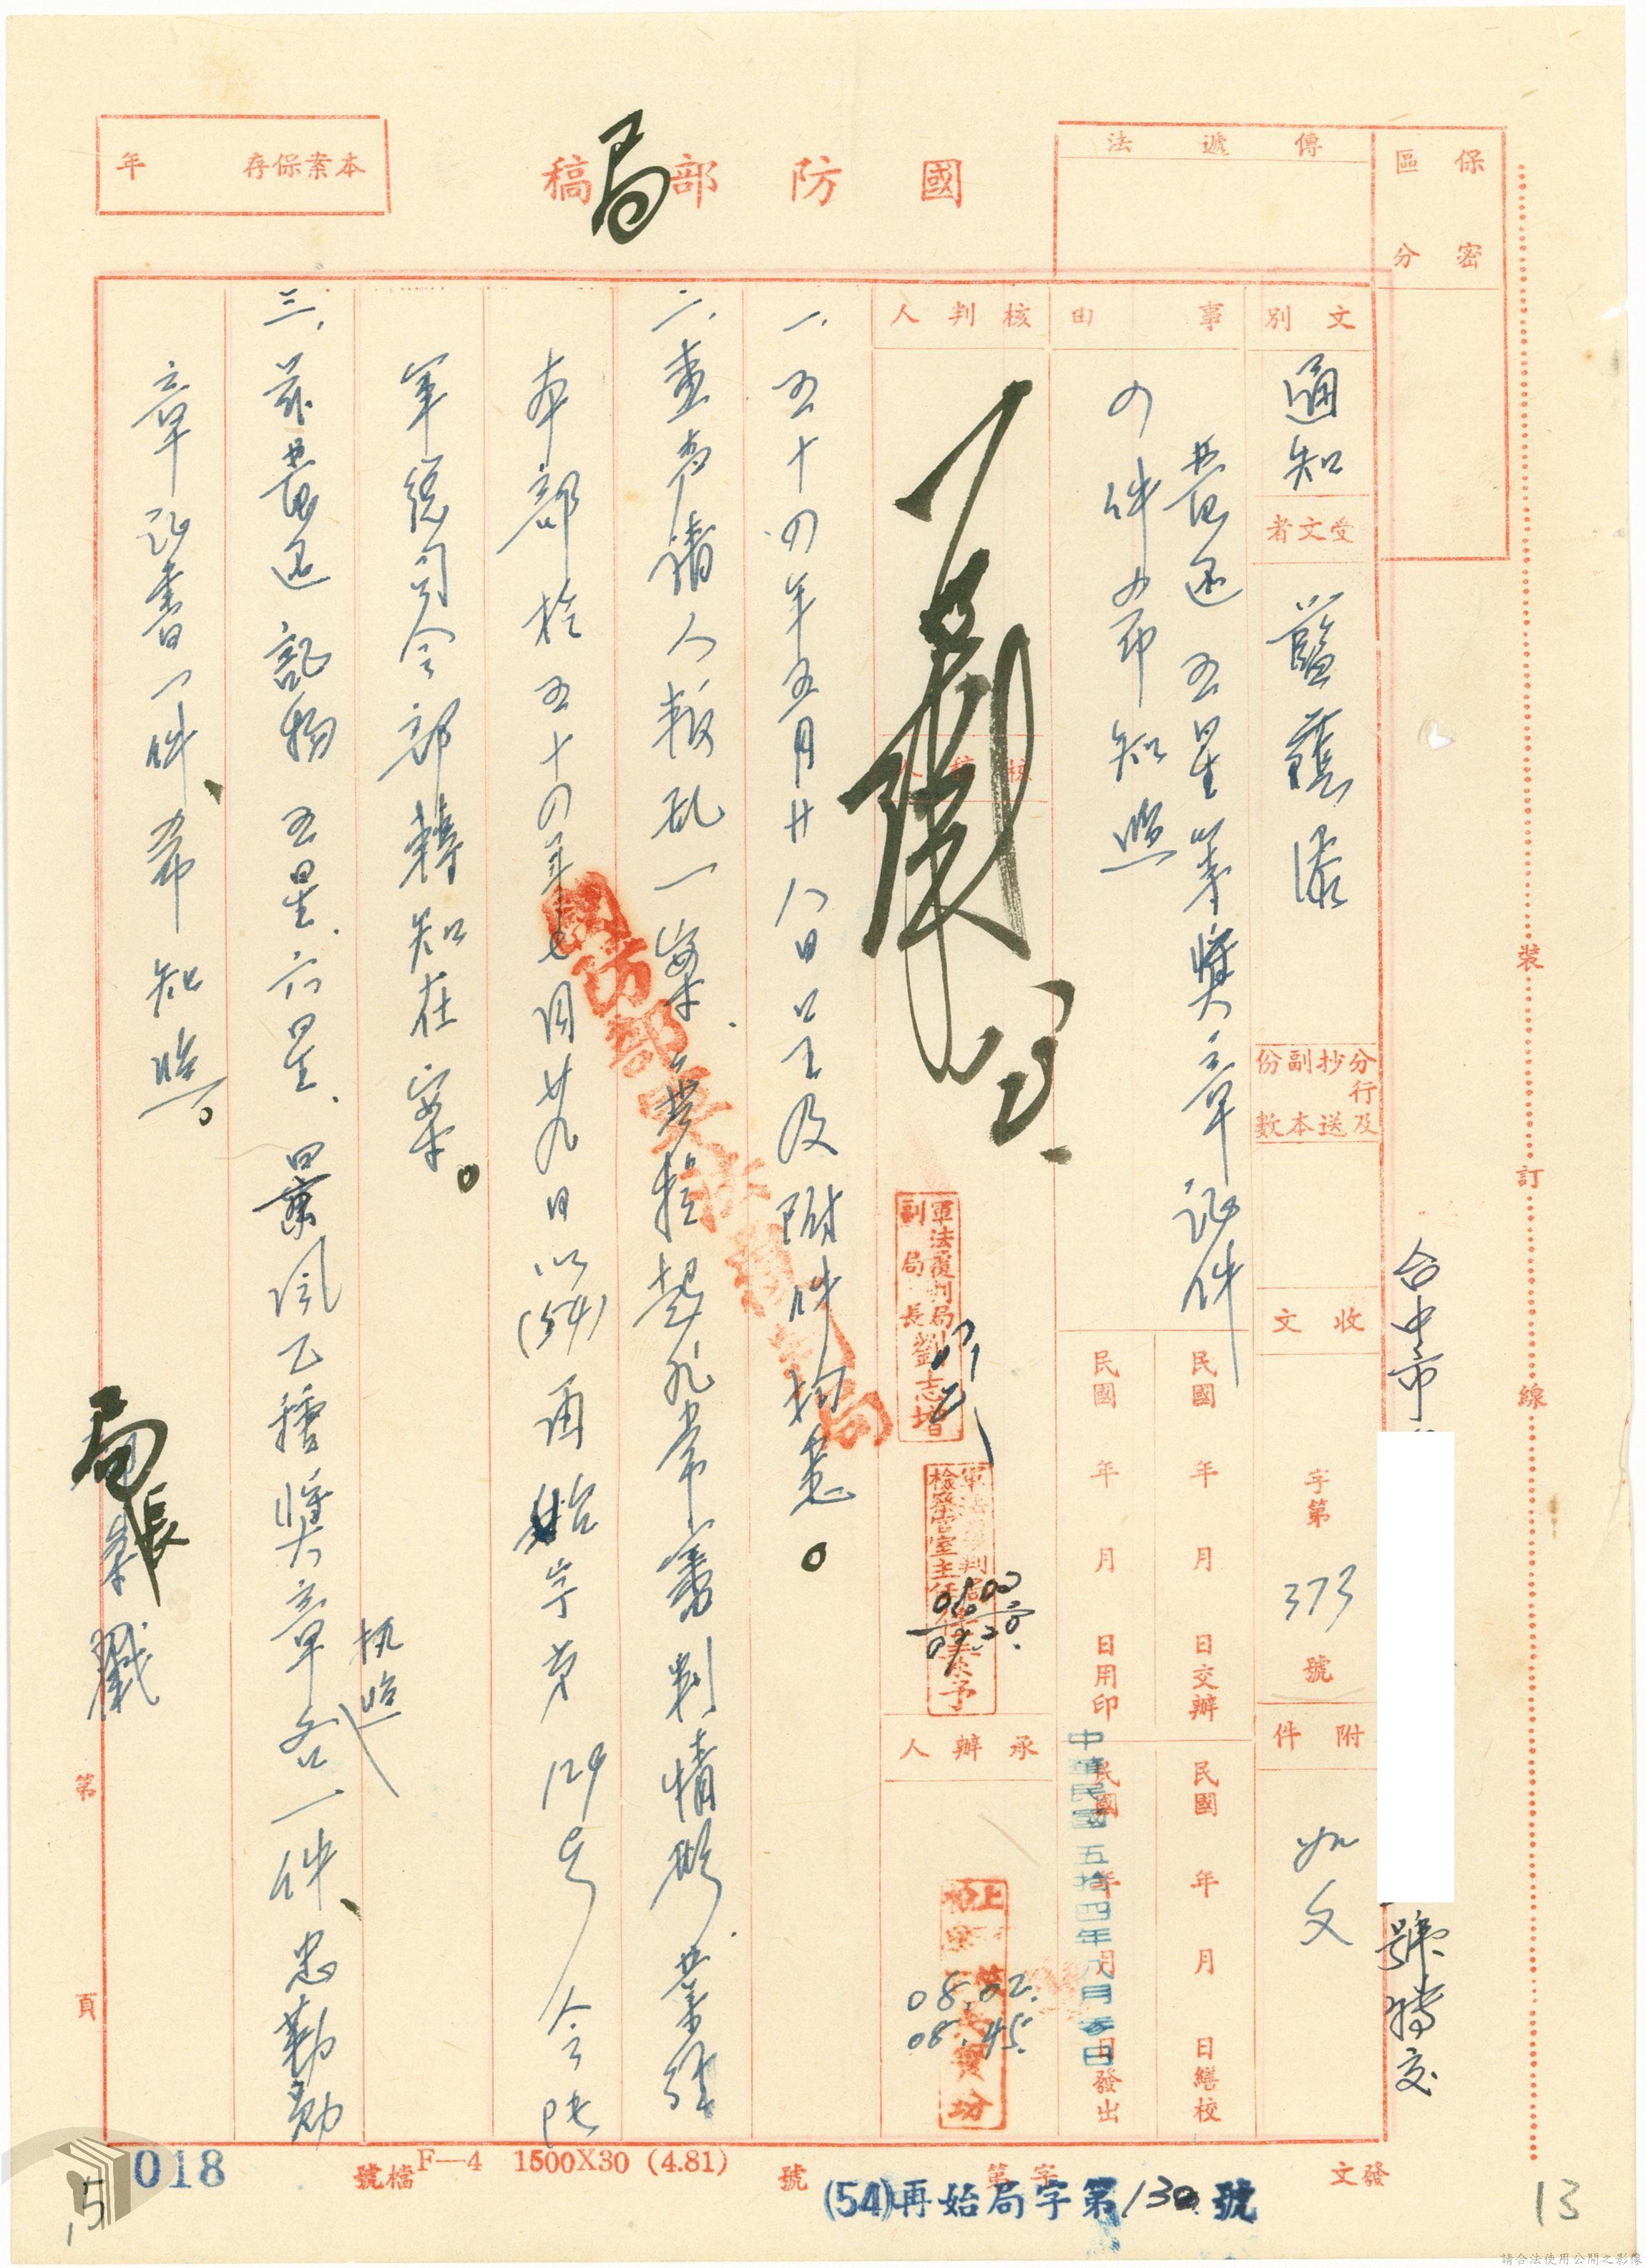 保密
區分
傳遞法
國防部稿
局
本案保存 年
文別
通知
受文者
藍護漆
分行及
抄送
副本
份數
收文
字第 373 號
附件
如文
台中市
號轉交
事由
發還五星等獎章證件
四件希知照
民國 年 月 日交辦
民國 年 月 日用印
民國 年 月 日繕校
民國 年 月 日發出
中華民國五拾四年八月 日
核判人
核稿人
軍法覆判局
副局長劉志增
軍法覆判局
檢察官室主任
承辦人
08.02.
08.45.
一、五十四年五月廿八日呈及附件均悉。
二、查聲請人叛乱一案,聲請提起非常審判情形,業經
本部於五十四年七月廿九日以(54)再始字第129號令陸
軍總司令部轉知在案。
三、茲發還証物五星、六星、景風乙種獎章執照各一件、忠勤勳
章証書一件、希知照。
局長
國防部軍法覆判局
裝訂線
第 頁
018
檔號
F—4 1500X30 (4.81)
發文 字第 號
(54)再始局字第130號
15
13
請合法使用公開之影像